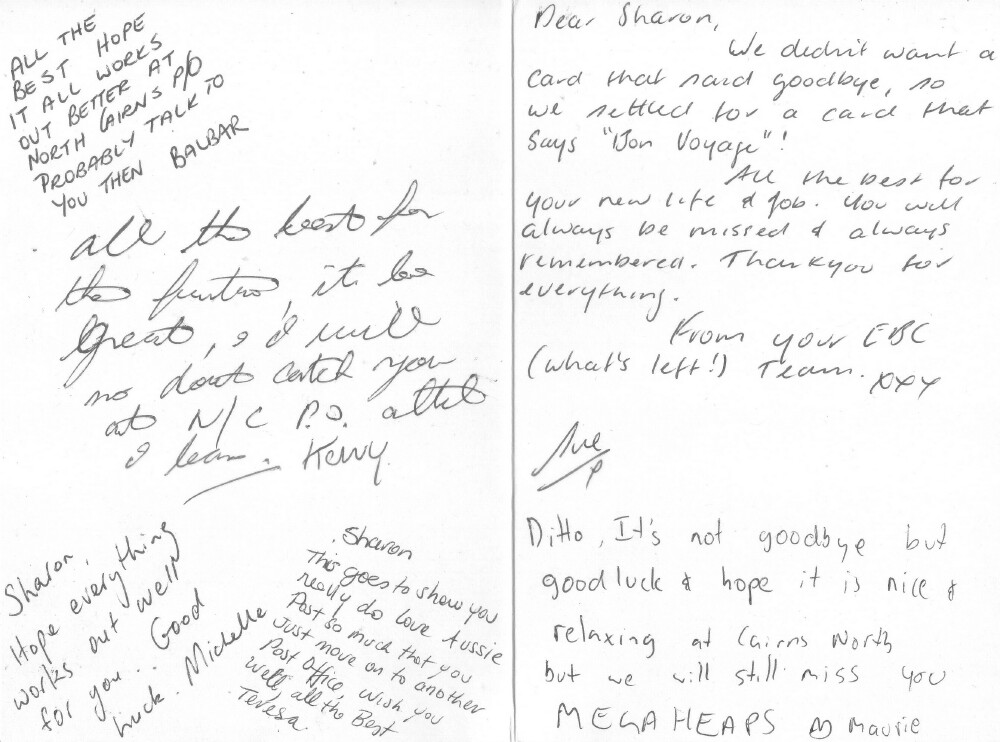 ALL THE
BEST HOPE
IT ALL WORKS
OUT BETTER AT
NORTH CAIRNS P/O
PROBABLY TALK TO
YOU THEN BALBAR
all the best for
the future, it'll be
Great, & I will
no dout catch you
at N/C P.O. after
I learn. Kerry
Sharon,
Hope everything
works out well
for you. Good
Luck. Michelle
Sharon
This goes to show you
really do love Aussie
Post so much that you
Just move on to another
Post Office, wish you
well, all the Best
Teresa.
Dear Sharon,
We didn't want a
card that said goodbye, so
we settled for a card that
says "Bon Voyage"!
All the best for
your new life & job. You will
always be missed & always
remembered. Thankyou for
everything.
From your EBC
(what's left!) Team. xxx
Sue
x
Ditto, It's not goodbye but
good luck & hope it is nice &
relaxing at Cairns North
but we will still miss you
MEGA HEAPS Maurie